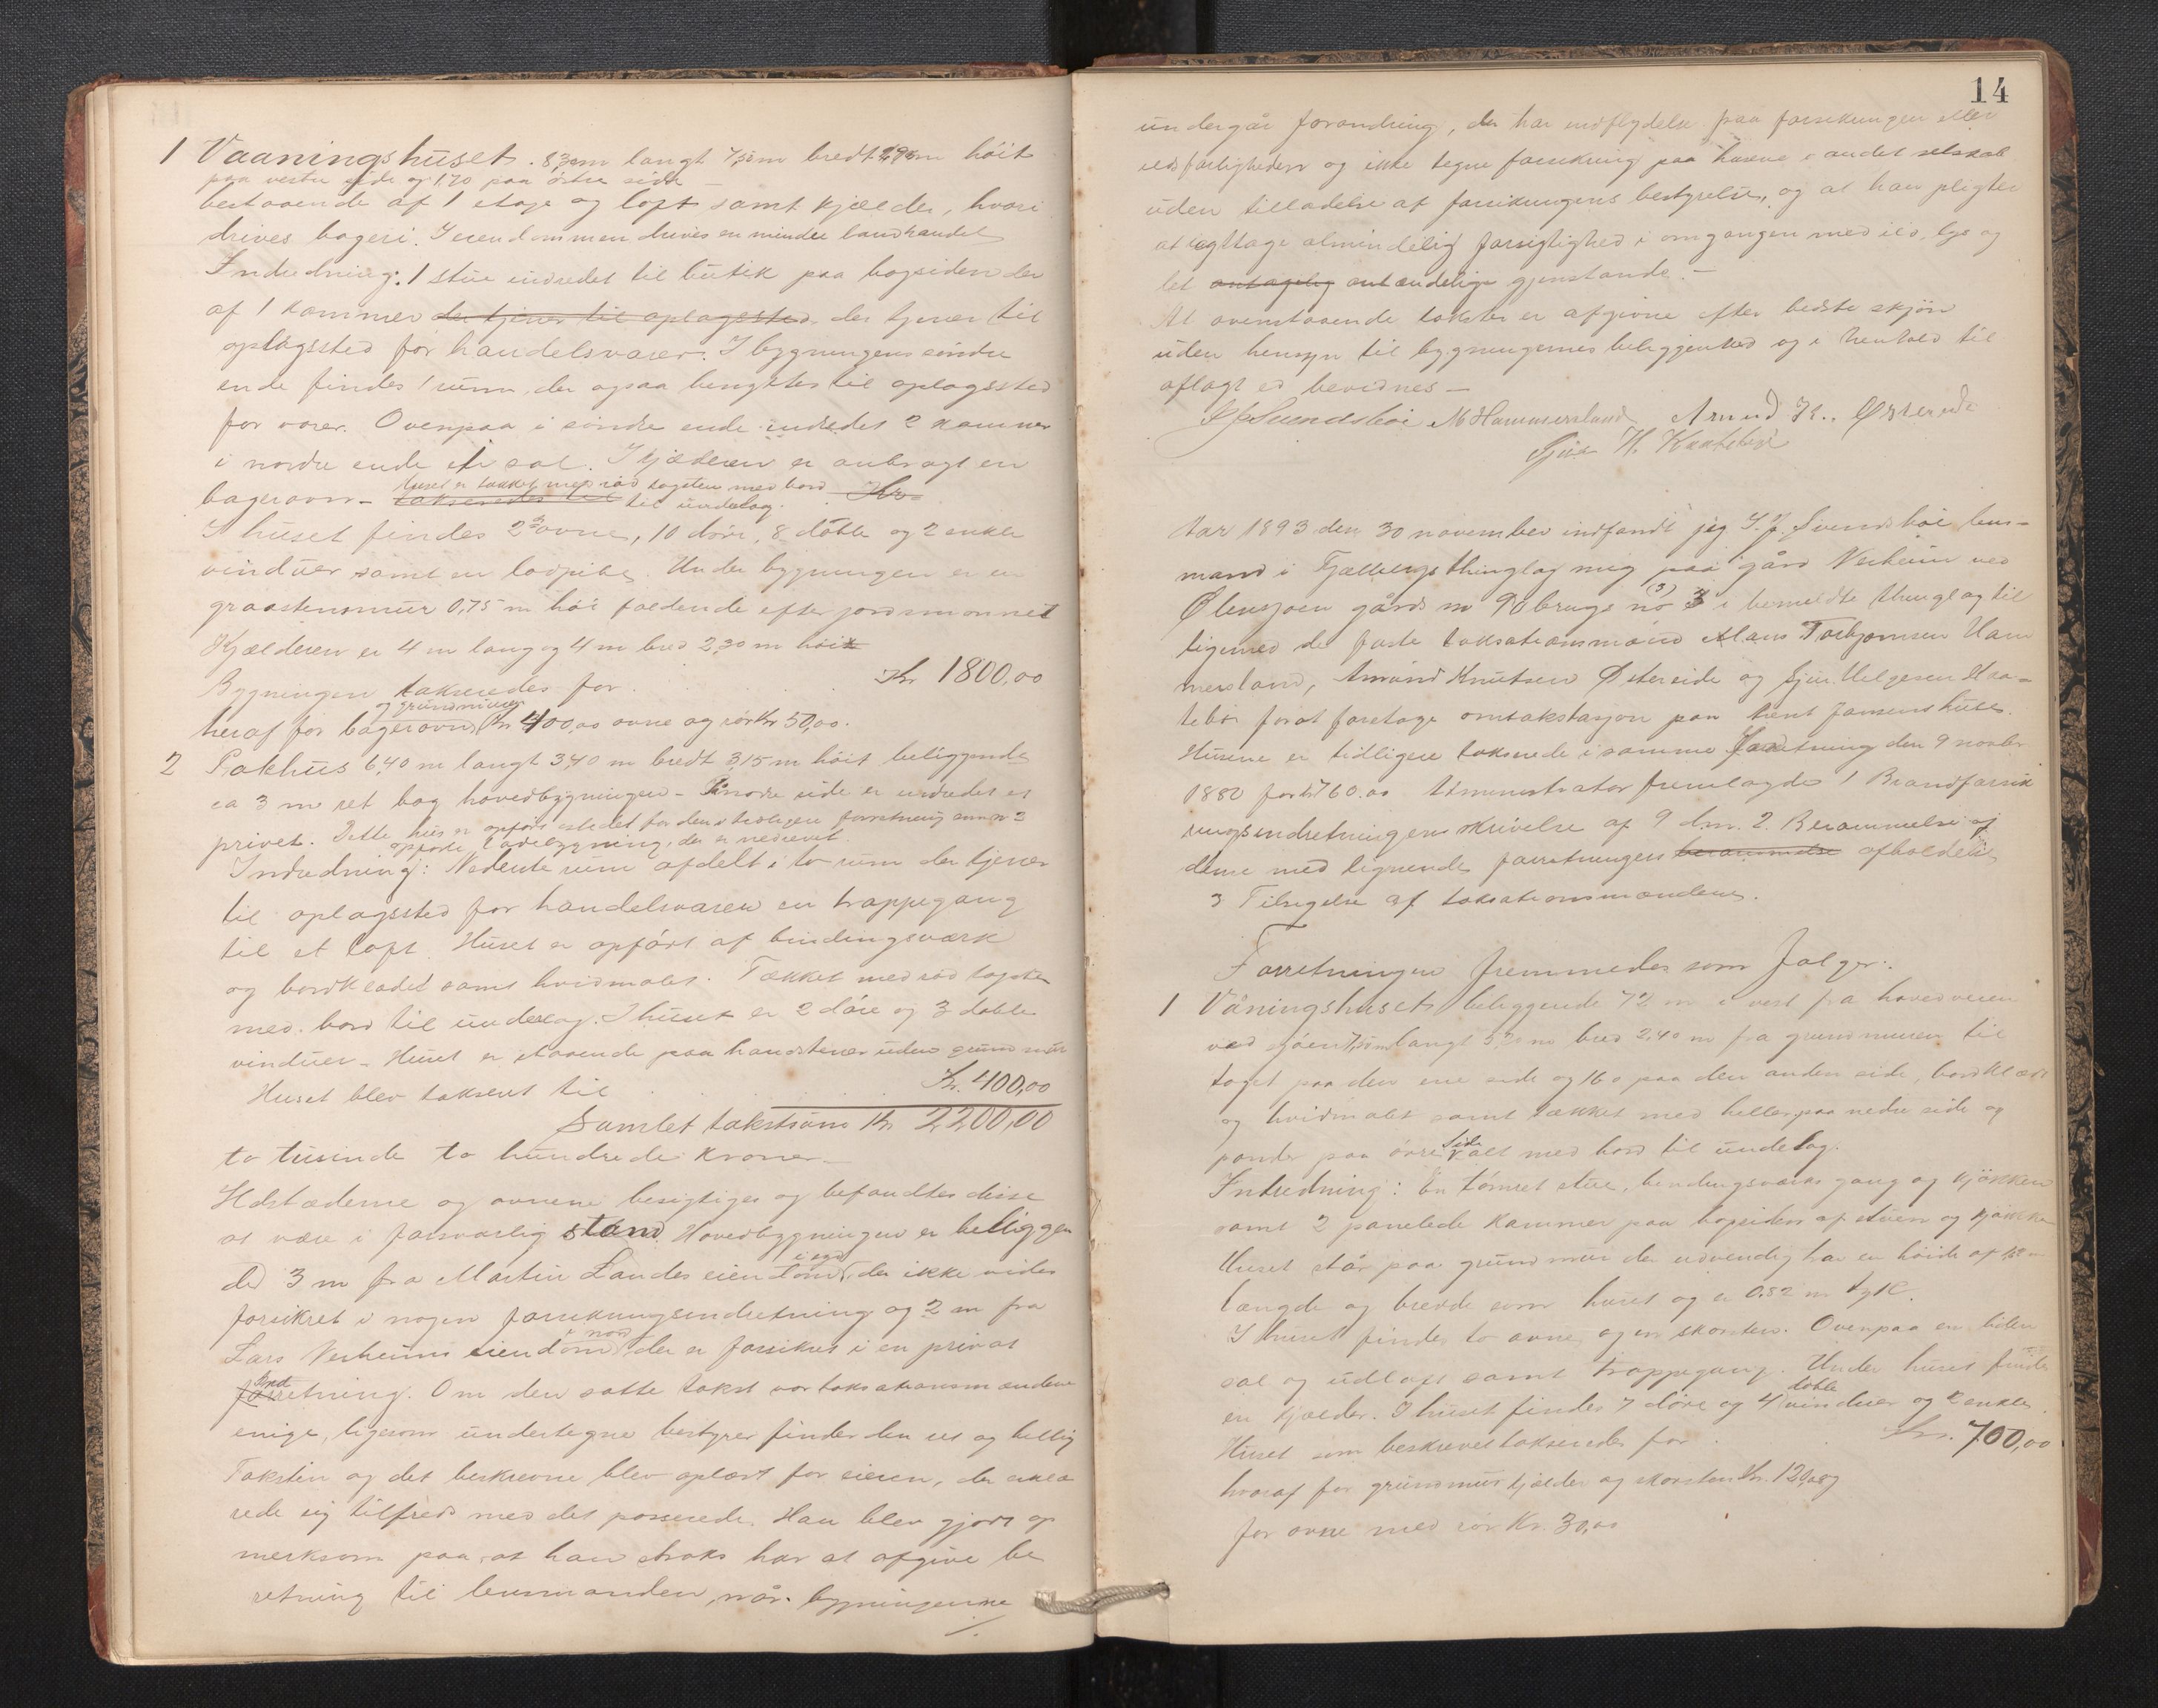 1 Vaaningshuset. 8,30m langt 7,50m bredt 2,90m høit
paa vestre side og 1,70 paa østre side
bestaaende af 1 etage og loft samt kjælder, hvori
drives bageri. I eiendommen drives en mindre landhandel
Indredning: 1 stue indredet til butik paa bagsiden der
af 1 kammer der tjener til oplagssted der tjener til
oplagssted for handelsvarer. I bygningens søndre
ende findes 1 rum der ogsaa benyttes til oplagssted
for varer. Ovenpaa i søndre ende indredet 2 kammer
i nordre ende en sal. I kjælderen er anbragt en
bagerovn – takseredes til huset er tækket med rød tagsten med bord til underlag. Kr
I huset findes 2 ovne, 10 døre, 8 doble og 2 enkle
vinduer samt en ladpibe. Under bygningen er en
graastensmur 0,75 m høi faldende efter jordsmonnet
Kjælderen er 4 m lang og 4 m bred 2,30 m høi
Bygningen takseredes for . . . Kr 1800,00
heraf for bagerovn og grundmur Kr 400,00 ovne og rør Kr 50,00.
2 Pakhus 6,40 m langt 3,40 m bredt 3,15 m høit beliggende
ca 3 m ret bag hovedbygningen – I nordre side er indredet et
privet. Dette hus er opført istedet for den i tidligere forretning under no 2
opførte ladebygning, der er nedrevet.
Indredning: Nederste rum afdelt i to rum der tjener
til oplagssted for handelsvarer en trappegang
til et loft. Huset er opført af bindingsværk
og bordklædt samt hvidmalet. Tækket med rød tagsten
med bord til underlag. I huset er 2 døre og 3 doble
vinduer – Huset er staaende paa handstener uden grundmur
Huset blev takseret til . . . Kr. 400,00
Samlet takstsum Kr 2200,00
to tusinde to hundrede kroner –
Ildstæderne og ovnene besigtiges og befandtes disse
at være i forsvarlig stand Hovedbygningen er beliggen
de 3 m fra Martin Landes eiendom i syd der ikke vides
forsikret i nogen forsikringsindretning og 2 m fra
Lars Neiheims eiendom i nord der er forsikret i en privat
forretning. Om den satte takst var taksationsmændene
enige, ligesom undertegne bestyrer finder den ret og billig
Taksten og det beskrevne blev oplæst for eieren, der erklæ
rede sig tilfreds med det passerede. Han blev gjort op
merksom paa at han straks har at afgive be
retning til lensmanden, når bygningerne
14
undergår forandring, der har indflydelse paa forsikringen eller
ildsfarligheden og ikke tegne forsikring paa husene i andet selskab
uden tilladelse af forsikringens bestyrelse, og at han pligter
at iagttage almindelig forsigtighed i omgangen med ild, lys og
let antagelig antændelige gjenstande. –
At ovenstaaende takster er afgivne efter bedste skjøn
uden hensyn til bygningernes beliggenhed og i henhold til
aflagt ed bevidnes –
J J Svendsbøe M Hammersland Amund K. Østereide
Sjur H. Kaatebø
Aar 1893 den 30 november indfandt jeg J. J. Svendsbøe lens-
mand i Fjelbergs thinglag mig paa gård Neiheim ved
Ølensjøen gårds no 90 brugs no 3 (3) i bemeldte thinglag til
ligemed de faste taksationsmænd Mons Torbjørnsen Ham
mersland, Amund Knutsen Østereide og Sjur Helgesen Kaa-
tebø for at foretage omtakstasjon paa Bent Jansens huse.
Husene er tidligere takserede i samme forretning den 9 novbr
1880 for Kr 760.00 Administrator fremlagde 1 Brandforsik
ringsindretningens skrivelse af 9 d.m. 2. Berammelse af
denne med lignende forretningers berammelse afholdelse
3 Tilsigelse af taksationsmændene.
Forretningen fremmedes som følger:
1 Våningshuset beliggende 72 m i vest fra hovedveien
ved sjøen 7,50m langt 5,20 m bred 2,40 m fra grundmuren til
taget paa den ene side og 160 paa den anden side, bordklædt
og hvidmalet samt tækket med heller paa nedre side og
pander paa øvre side alt med bord til underlag.
Indredning: En tømret stue, bindingsværks gang og kjøkken
samt 2 panelede kammer paa bagsiden af stuen og kjøkken
Huset står paa grundmur der udvendig har en høide af
længde og bredde som huset og er 0.52 m tyk.
I huset findes to ovne og en skorsten. Ovenpaa en liden
sal og udloft samt trappegang. Under huset findes
en kjælder. I huset findes 7 døre og 4 doble vinduer og 2 enkle
Huset som beskrevet takseredes for . . Kr. 700,00
hvoraf for grundmur kjælder og skorsten Kr. 120,00 og
for ovne med rør Kr. 30,00